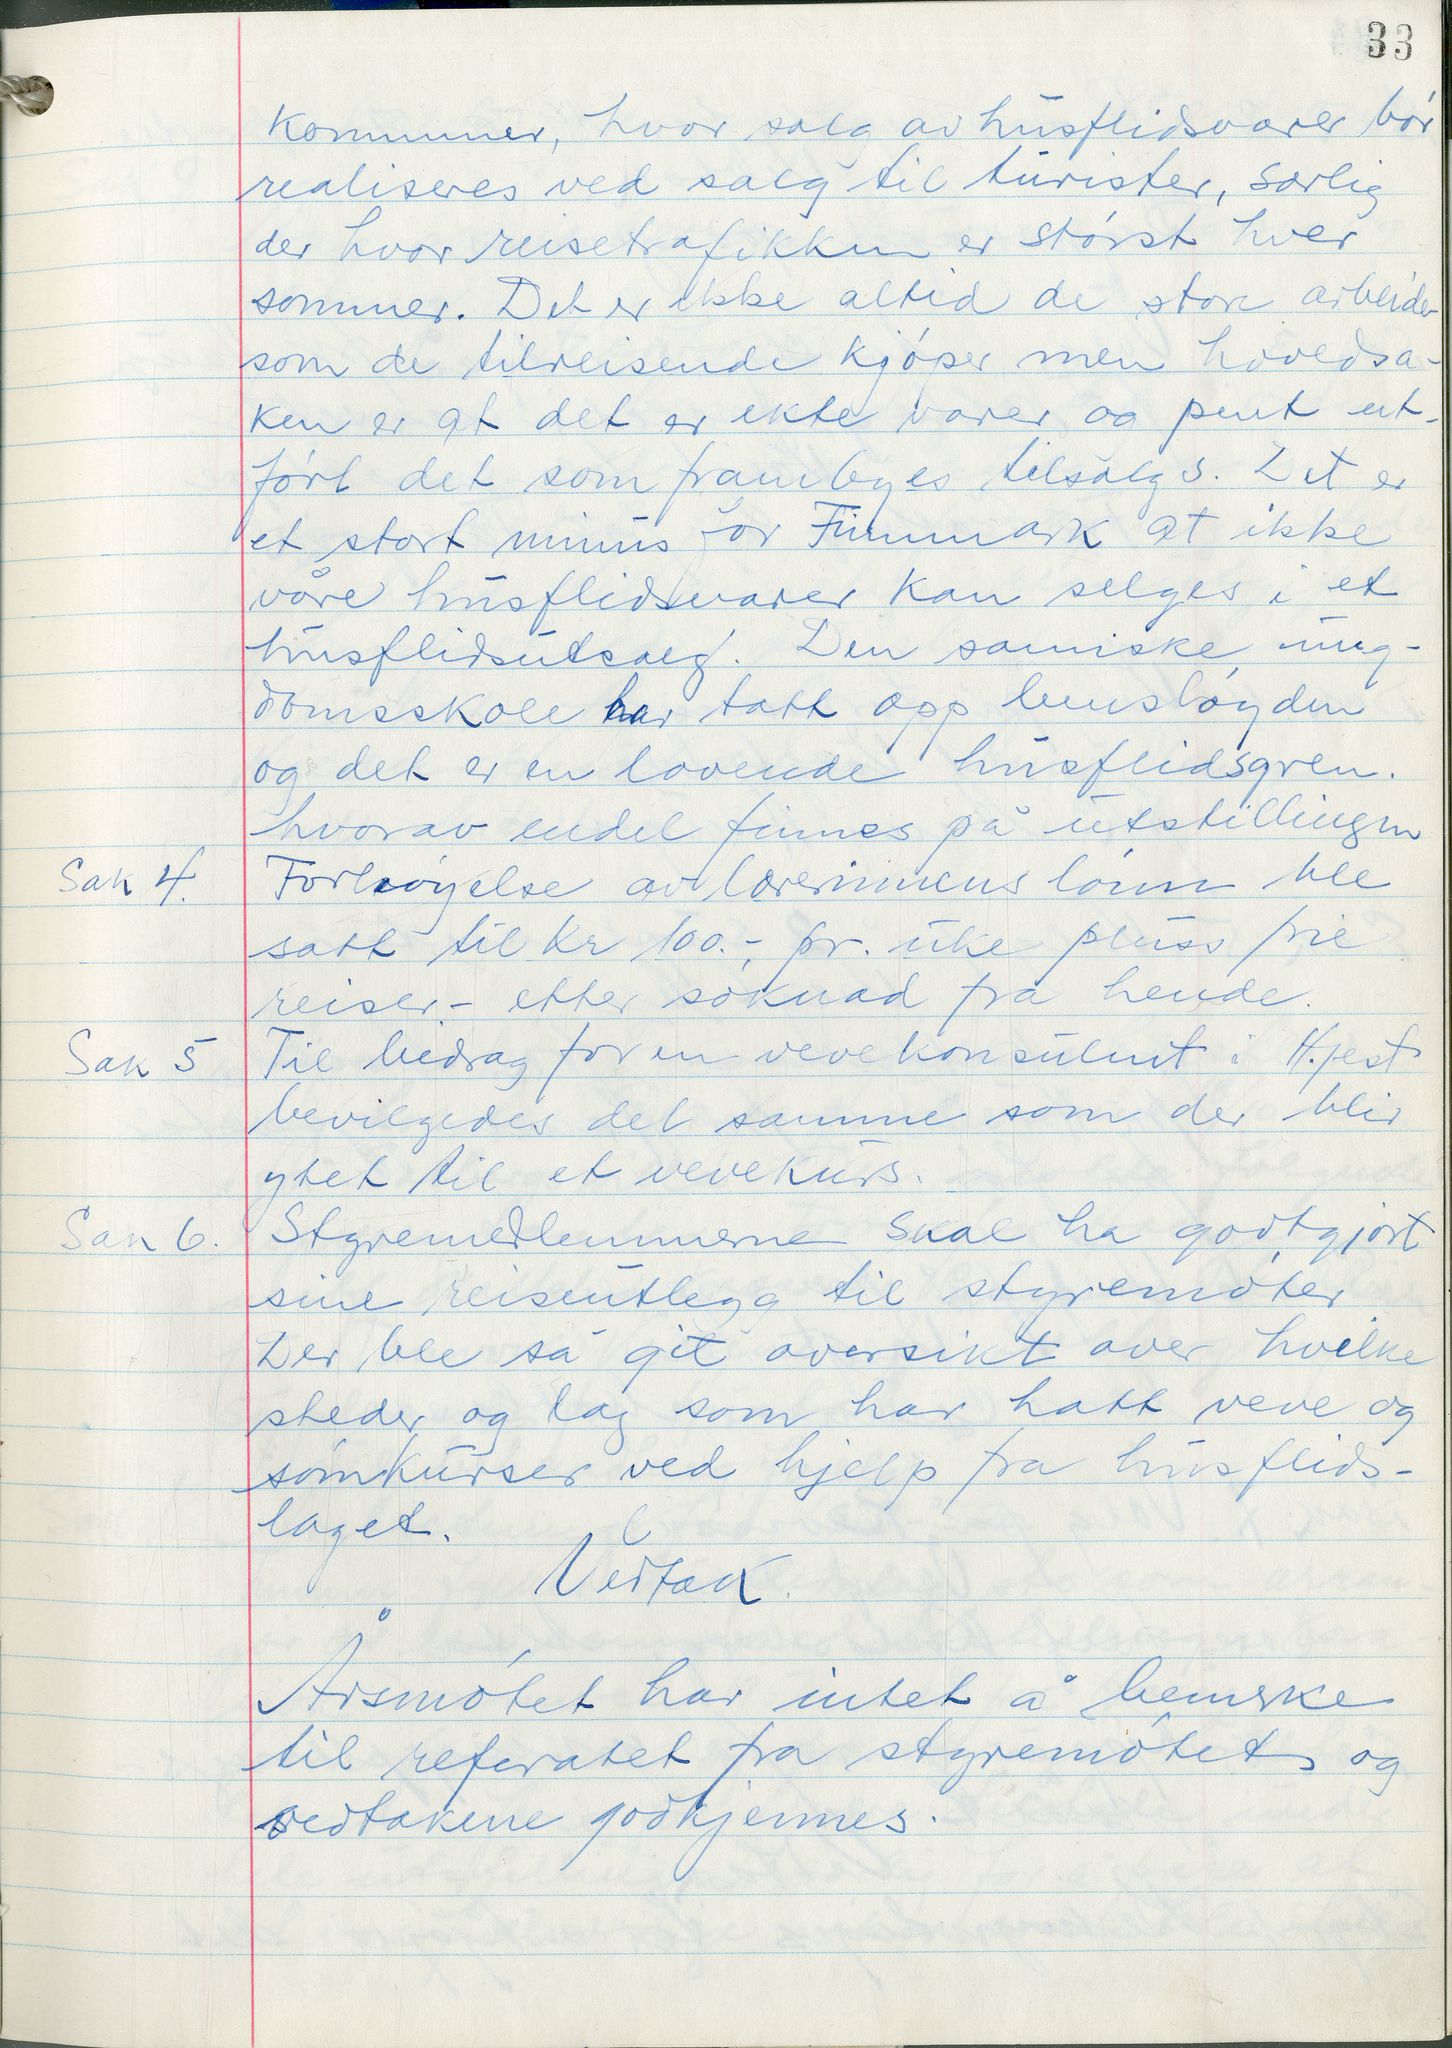 33
kommuner, hvor salg av husflidsvarer bör
realiseres ved salg til turister, særlig
der hvor reisetrafikken er störst hver
sommer. Det er ikke altid de store arbeider
som de tilreisende kjöper men hovedsa-
ken er at det er ekte varer og pent ut-
fört det som frambyes tilsalgs. Det er
et stort minus for Finnmark at ikke
våre husflidsvarer kan selges i et
husflidsutsalg. Den samiske ung-
domsskole har tatt opp benslöyden
og det er en lovende husflidsgren.
hvorav endel finnes på utstillingen
Sak 4. Forhöyelse av lærerinnens lönn ble
satt til kr 100.-, pr. uke pluss frie
reiser,- etter söknad fra hende.
Sak 5 Til bedrag for en vevekonsulent i H.fest
bevilgedes det samme som der blir
ytet til et vevekurs.
Sak 6. Styremedlemmerne skal ha godtgjort
sine reiseutlegg til styremöter
Der ble så git oversikt over hvilke
steder og lag som har hatt veve og
sömkurser ved hjelp fra husflids-
laget.
Vedtak.
Årsmötet har intet å bemerke
til referatet fra styremötet, og
vedtakene godkjennes.